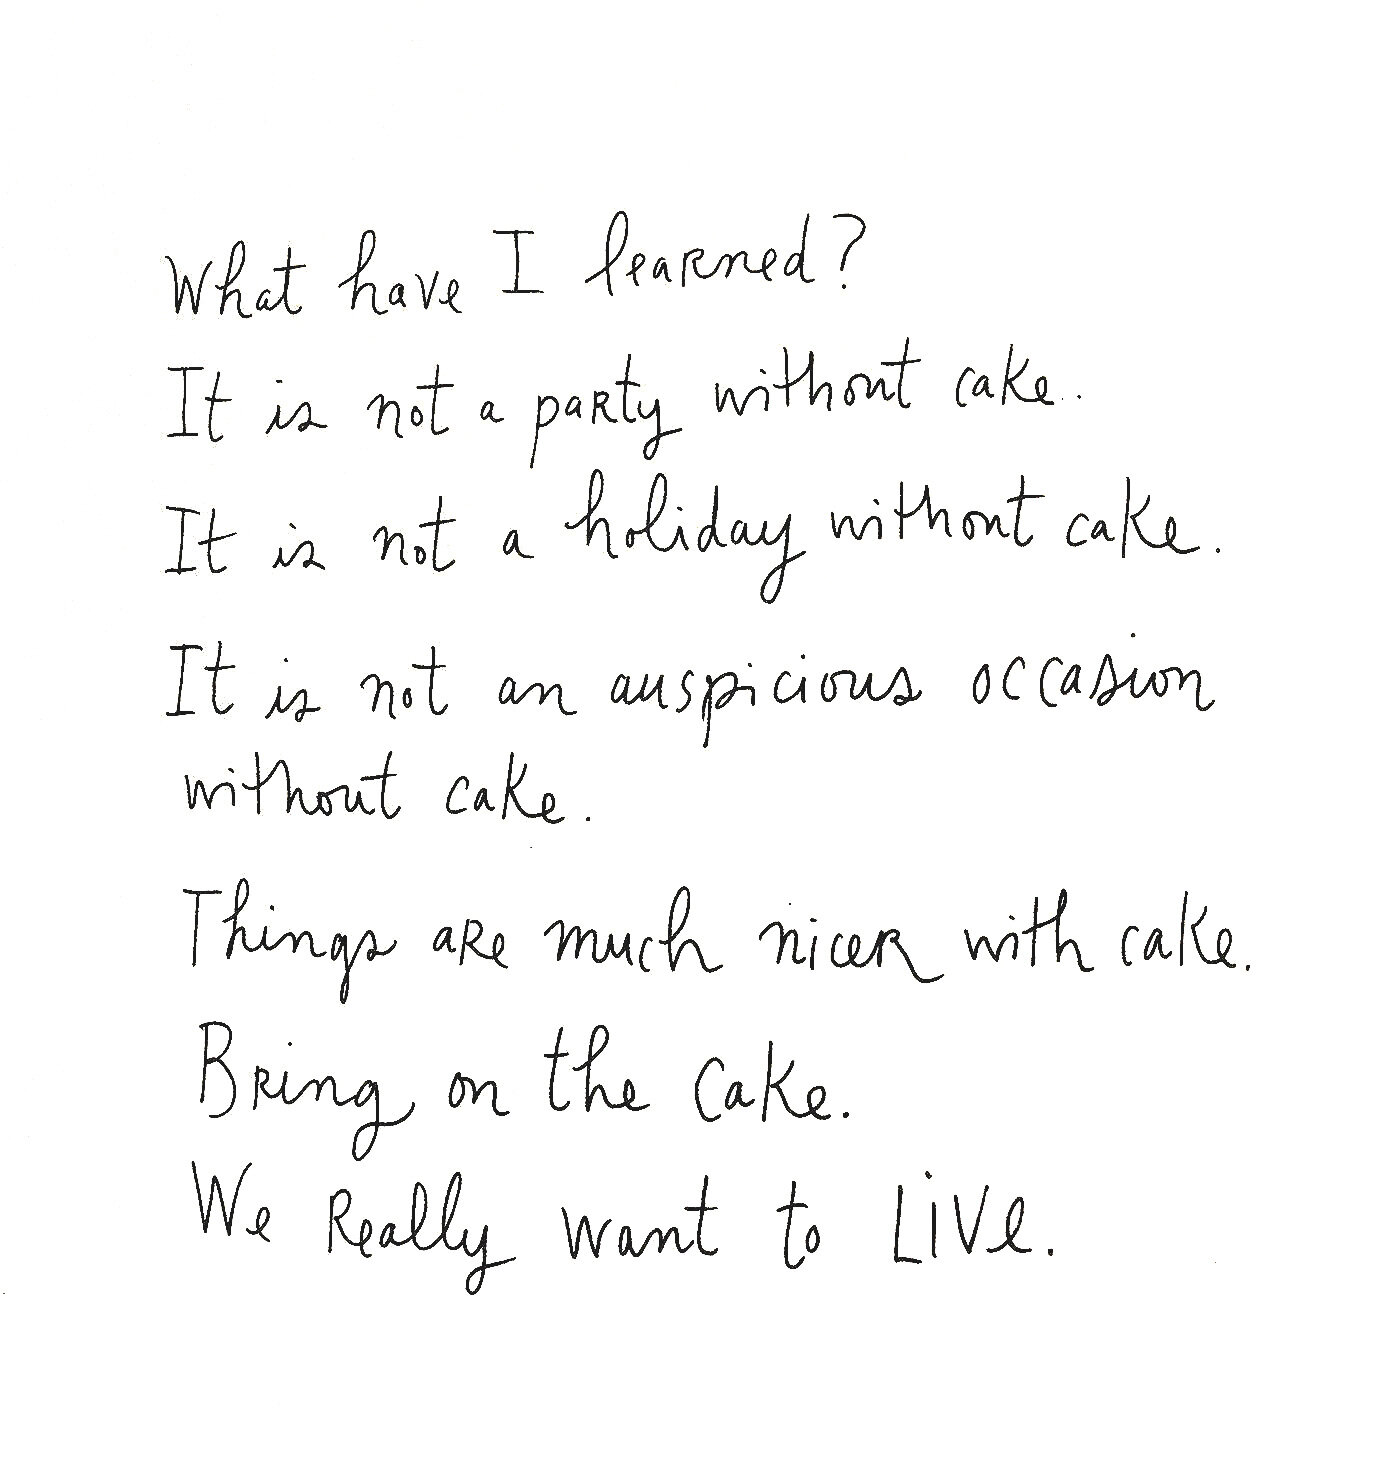 What have I learned?
It is not a party without cake.
It is not a holiday without cake.
It is not an auspicious occasion
without cake.
Things are much nicer with cake.
Bring on the cake.
We Really want to Live.